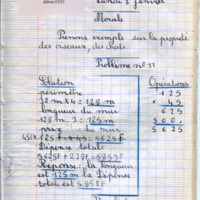 élève
Lundi 8 Janvier
Morale
Prenons exemple sur la propreté
des oiseaux, des chats.
Problème n° 11
Solution
Opérations
périmètre
32 m x 4 = 128 m
125
longueur du mur
x 45
128 m - 3 = 125 m
625
prix du mur
500.
45F x 125 = 5625 F
5625
Dépense totale
5625F + 228F = 5853F
Réponse: la longueur
est 125 m la Dépense
totale est 5.853F